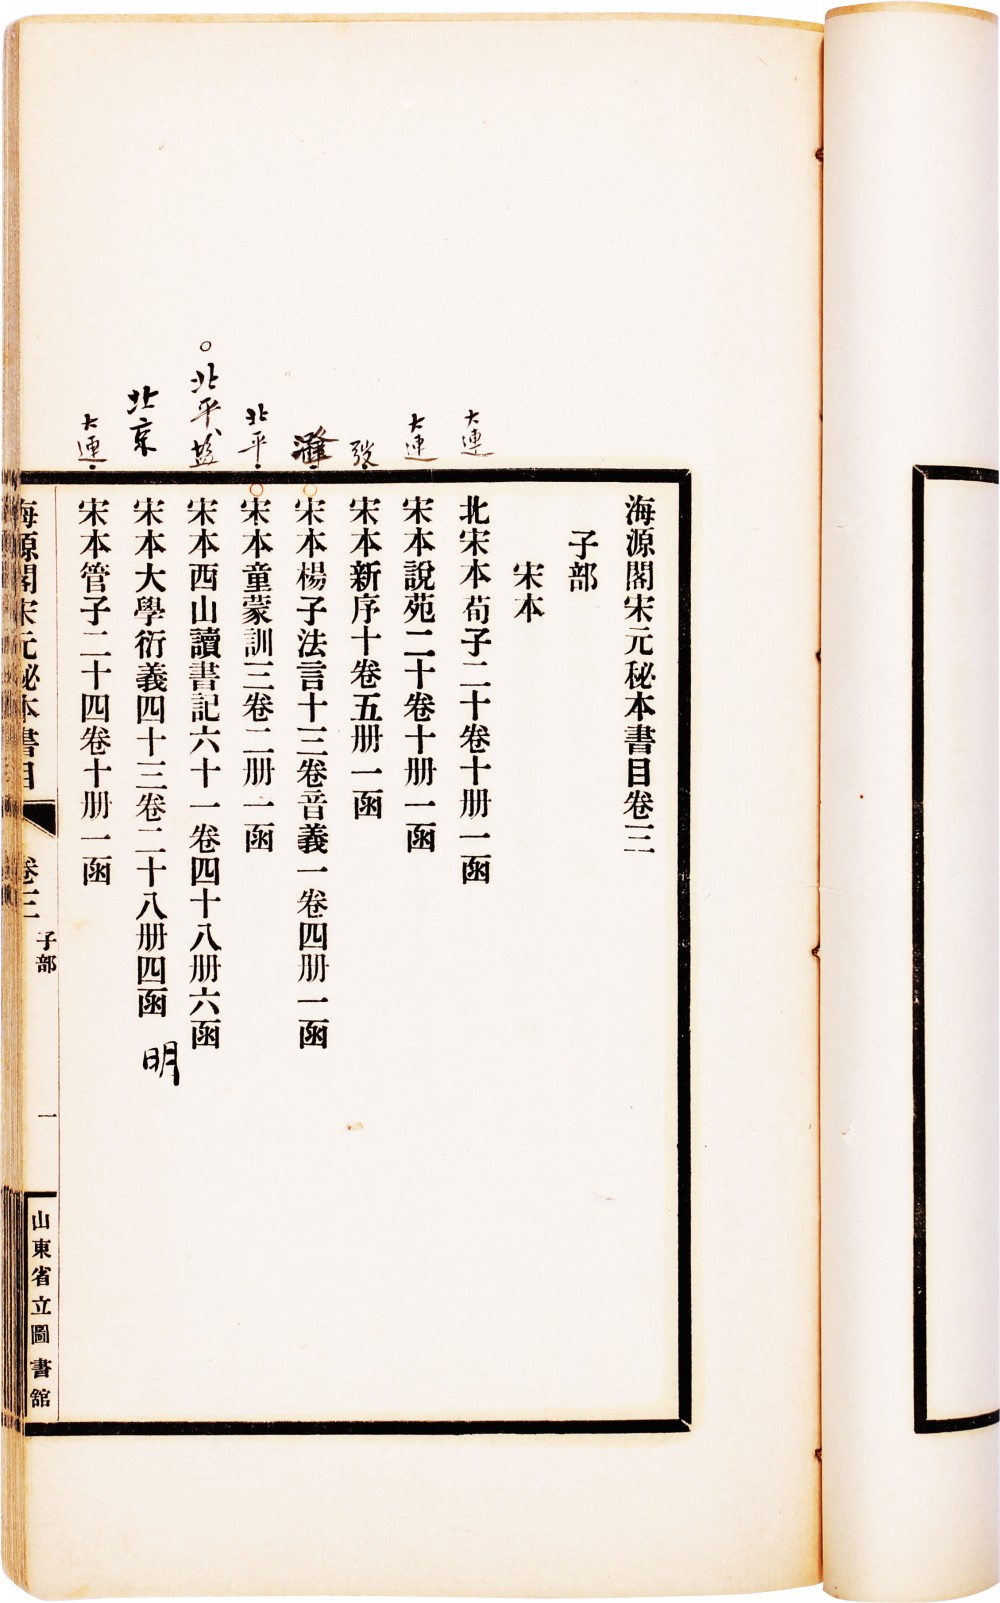 海源閣宋元秘本書目卷三
子部
宋本
大連
北宋本荀子二十卷十册一函
大連
宋本說苑二十卷十册一函
發
宋本新序十卷五册一函
宋本楊子法言十三卷音義一卷四册一函
北平
宋本童蒙訓三卷二册一函
北平
宋本西山讀書記六十一卷四十八册六函
北京
宋本大學衍義四十三卷二十八册四函 明
大連
宋本管子二十四卷十册一函
海源閣宋元秘本書目 卷三 子部 一 山東省立圖書館